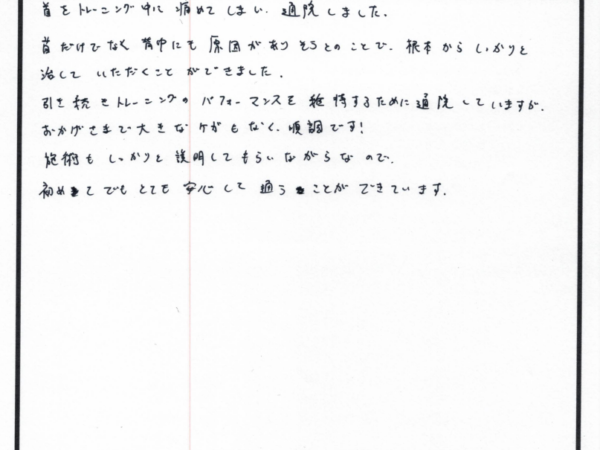 首をトレーニング中に痛めてしまい、通院しました。
首だけでなく背中にも原因がありそうとのことで、根本からしっかりと
治していただくことができました。
引き続きトレーニングのパフォーマンスを維持するために通院していますが、
おかげさまで大きなケガもなく、順調です!
施術もしっかりと説明してもらいながらなので、
初めてでもとても安心して通うことができています。